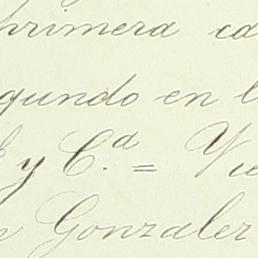 primera ca
gundo en l
y C.ª = Vi
Gonzalez